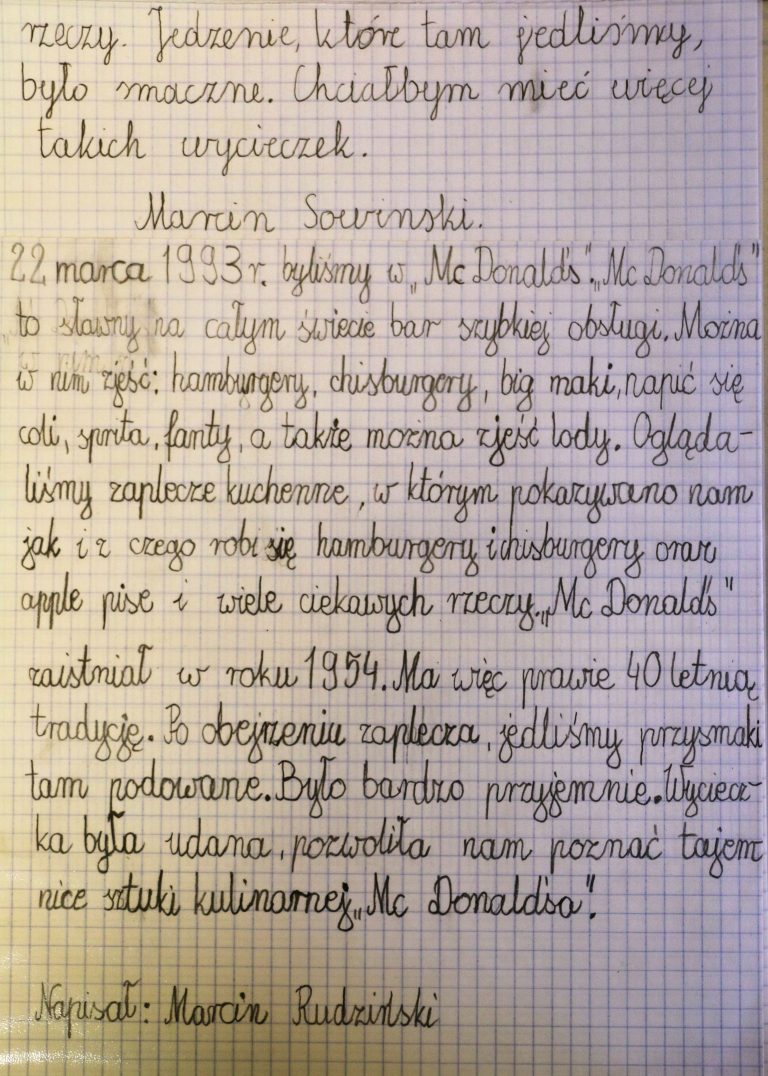 rzeczy. Jedzenie, które tam jedliśmy,
było smaczne. Chciałbym mieć więcej
takich wycieczek.
Marcin Sowinski.
22 marca 1993 r. byliśmy w „Mc Donald's”. „Mc Donald's”
to sławny na całym świecie bar szybkiej obsługi. Można
w nim zjeść: hamburgery, chisburgery, big maki, napić się
coli, sprita, fanty, a także można zjeść lody. Ogląda-
liśmy zaplecze kuchenne, w którym pokazywano nam
jak i z czego robi się hamburgery i chisburgery oraz
apple pise i wiele ciekawych rzeczy. „Mc Donald's”
zaistniał w roku 1954. Ma więc prawie 40 letnią
tradycję. Po obejrzeniu zaplecza, jedliśmy przysmaki
tam podowane. Było bardzo przyjemnie. Wyciecz-
ka była udana, pozwoliła nam poznać tajem-
nice sztuki kulinarnej „Mc Donald'sa”.
Napisał: Marcin Rudziński